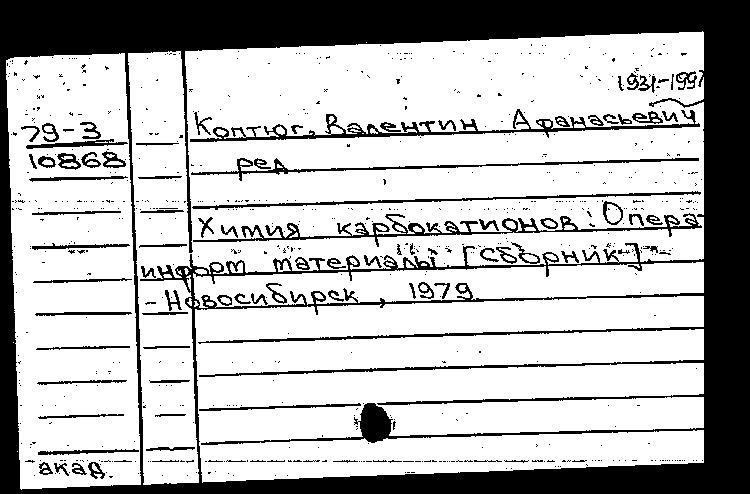 1931-1997
79-3
10868
Коптюг, Валентин Афанасьевич
ред
Химия карбокатионов: Опера
информ. материалы. [Сборник].
- Новосибирск, 1979.
акад.